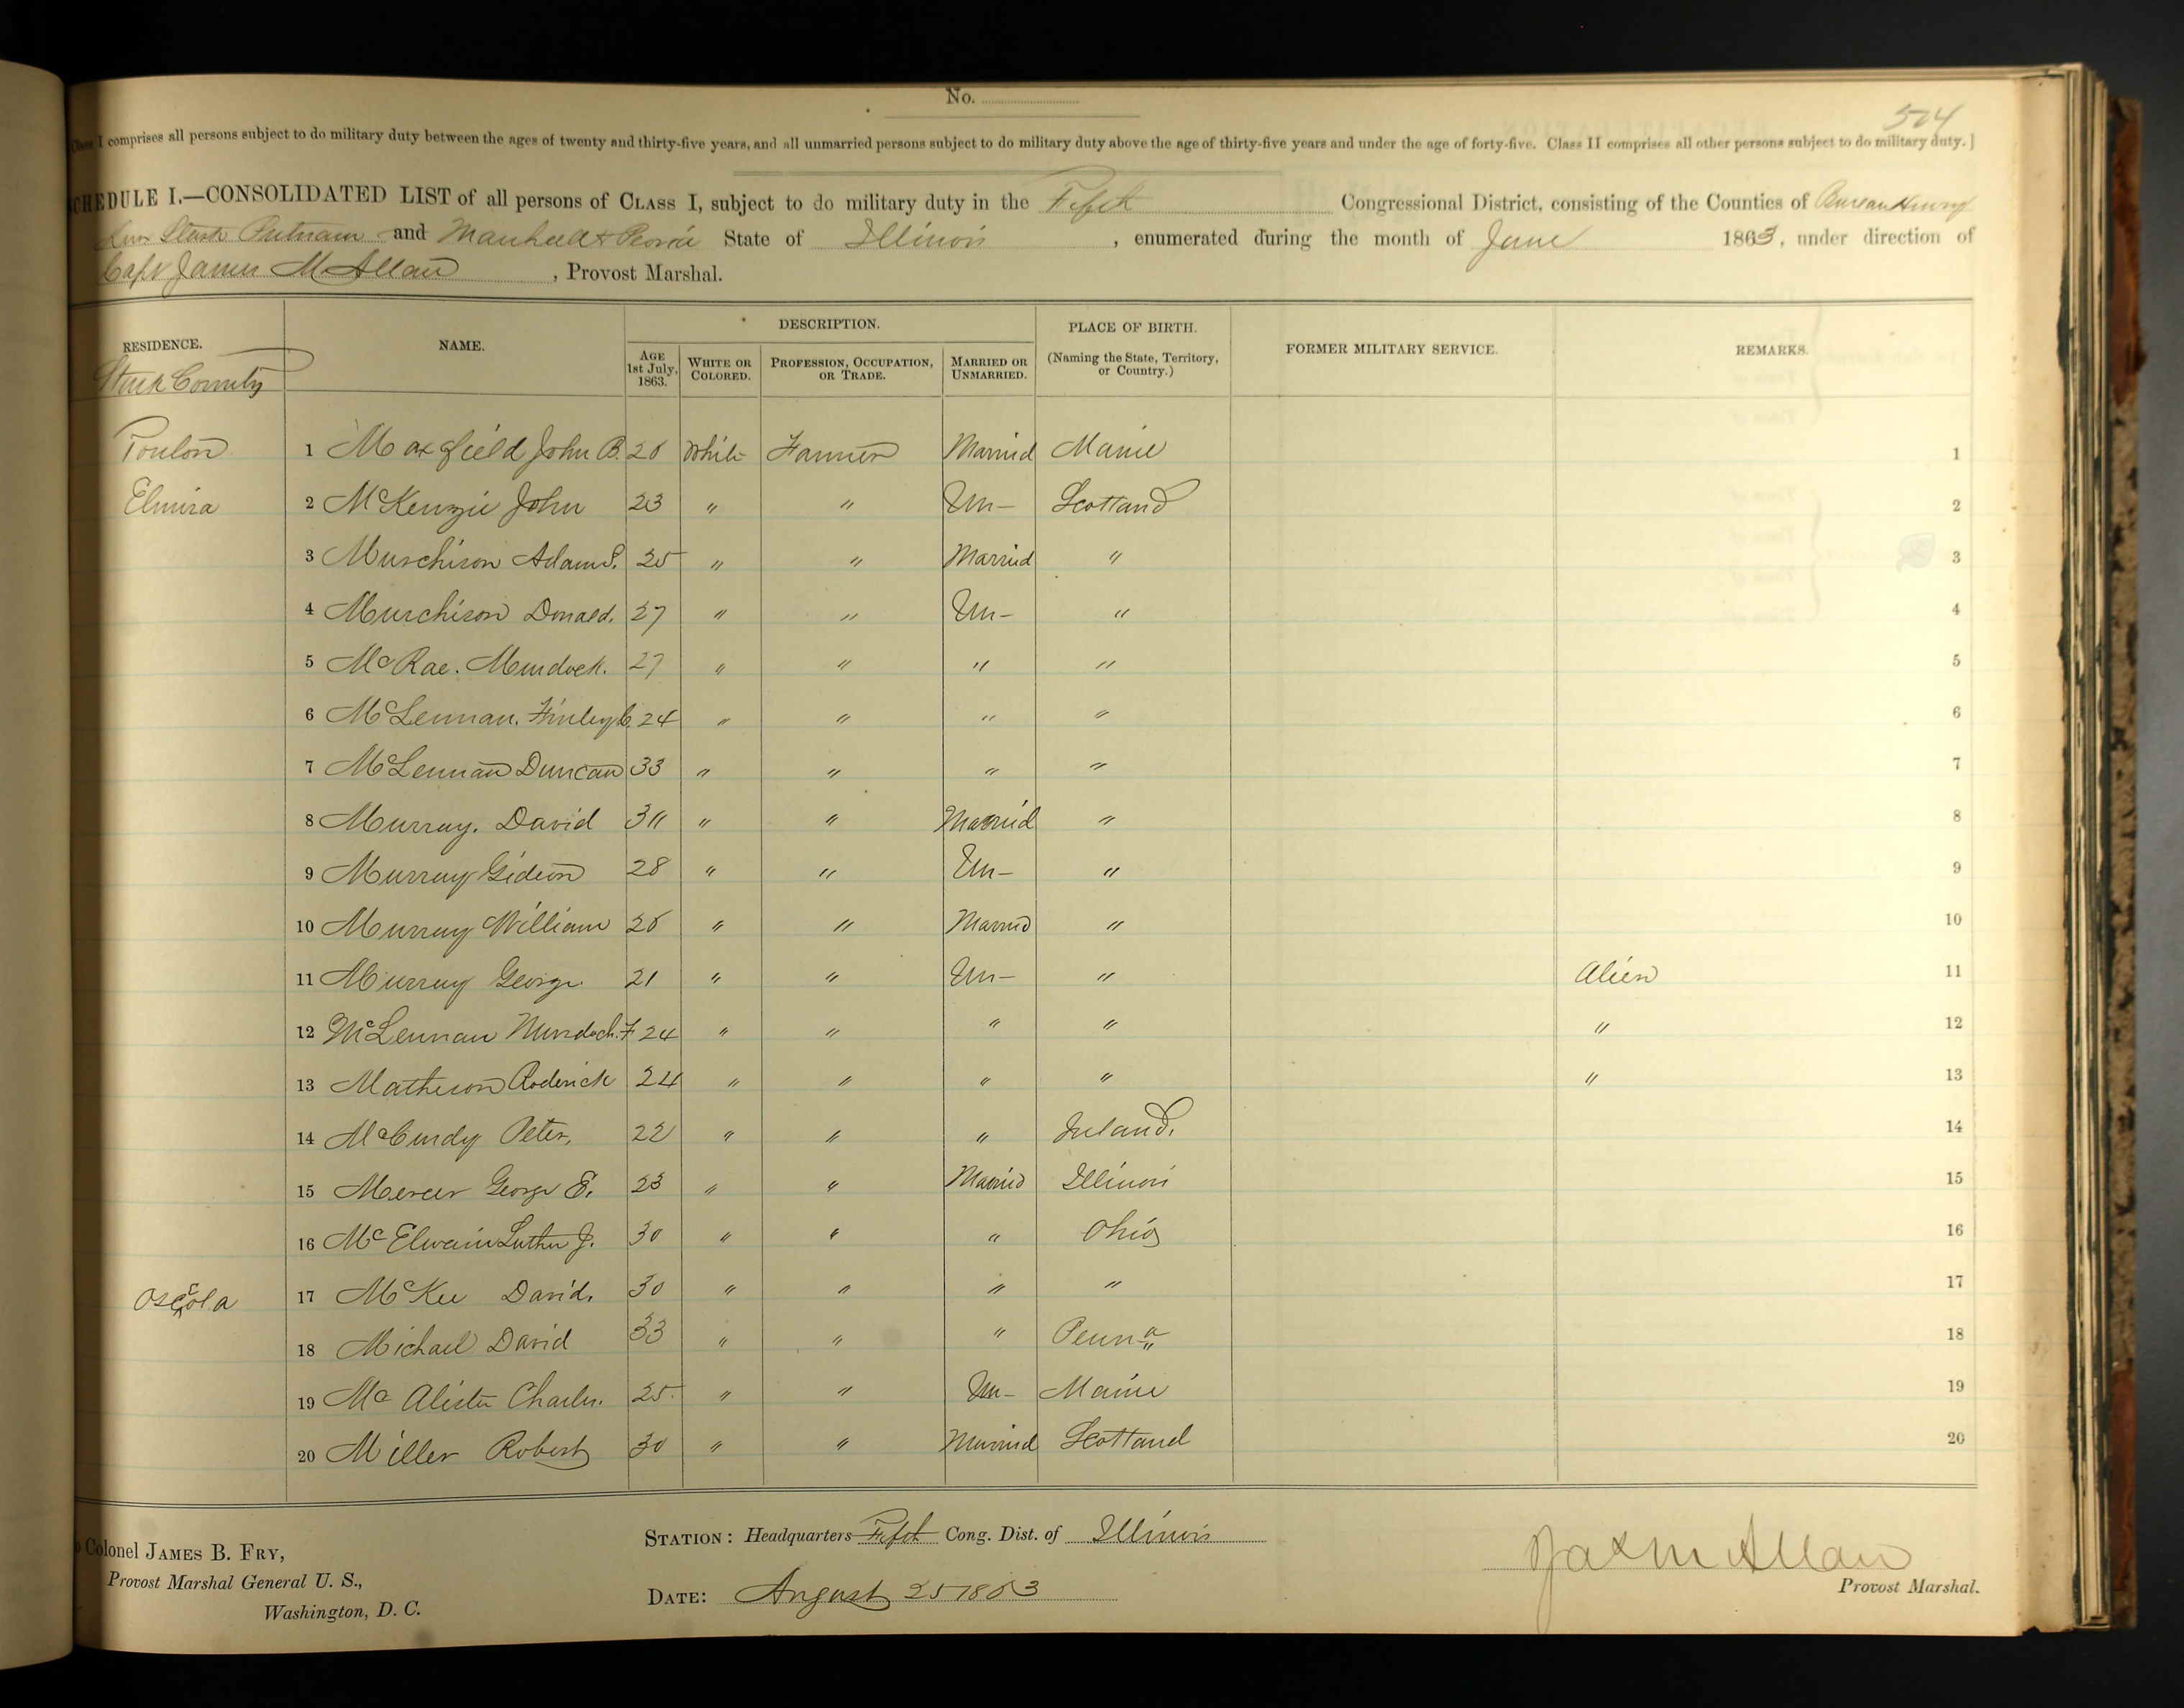 No.
504
Class I comprises all persons subject to do military duty between the ages of twenty and thirty-five years, and all unmarried persons subject to do military duty above the age of thirty-five years and under the age of forty-five. Class II comprises all other persons subject to do military duty.]
SCHEDULE I.—CONSOLIDATED LIST of all persons of CLASS I, subject to do military duty in the Fifth Congressional District, consisting of the Counties of Bureau Henry
Stark Putnam and Marshall & Peoria State of Illinois, enumerated during the month of June 1863, under direction of
Capt James M Allan, Provost Marshal.
RESIDENCE. NAME. DESCRIPTION. PLACE OF BIRTH. (Naming the State, Territory, or Country.) FORMER MILITARY SERVICE. REMARKS.
AGE 1st July, 1863. WHITE OR COLORED. PROFESSION, OCCUPATION, OR TRADE. MARRIED OR UNMARRIED.
Stark County
Toulon 1 Maxfield John B. White Farmer Married Maine 1
Elmira 2 McKenzie John 23 " " Un- Scotland 2
3 Murchison Adam S. 25 " " Married " 3
4 Murchison Donald. 27 " " Un- " 4
5 McRae. Murdock. 27 " " " " 5
6 McLennan. Finley C. 24 " " " " 6
7 McLennan Duncan 33 " " " " 7
8 Murray. David " " Married " 8
9 Murray Gideon 28 " " Un- " 9
10 Murray William " " Married " 10
11 Murray George 21 " " Un- " Alien 11
12 McLennan Murdoch. F 24 " " " " " 12
13 Matheson Roderick 24 " " " " " 13
14 McCurdy Peter. 22 " " " Ireland. 14
15 Mercer George E. 23 " " Married Illinois 15
16 McElwain Luther J. 30 " " " Ohio 16
Osceola 17 McKee David. 30 " " " " 17
18 Michael David 33 " " " Penna 18
19 Mc Alister Charles. 25 " " Un- Maine 19
20 Miller Robert 30 " " Married Scotland 20
Colonel JAMES B. FRY,
Provost Marshal General U. S.,
Washington, D. C.
STATION: Headquarters Fifth Cong. Dist. of Illinois
DATE: August 25 1863
Jas M Allan
Provost Marshal.